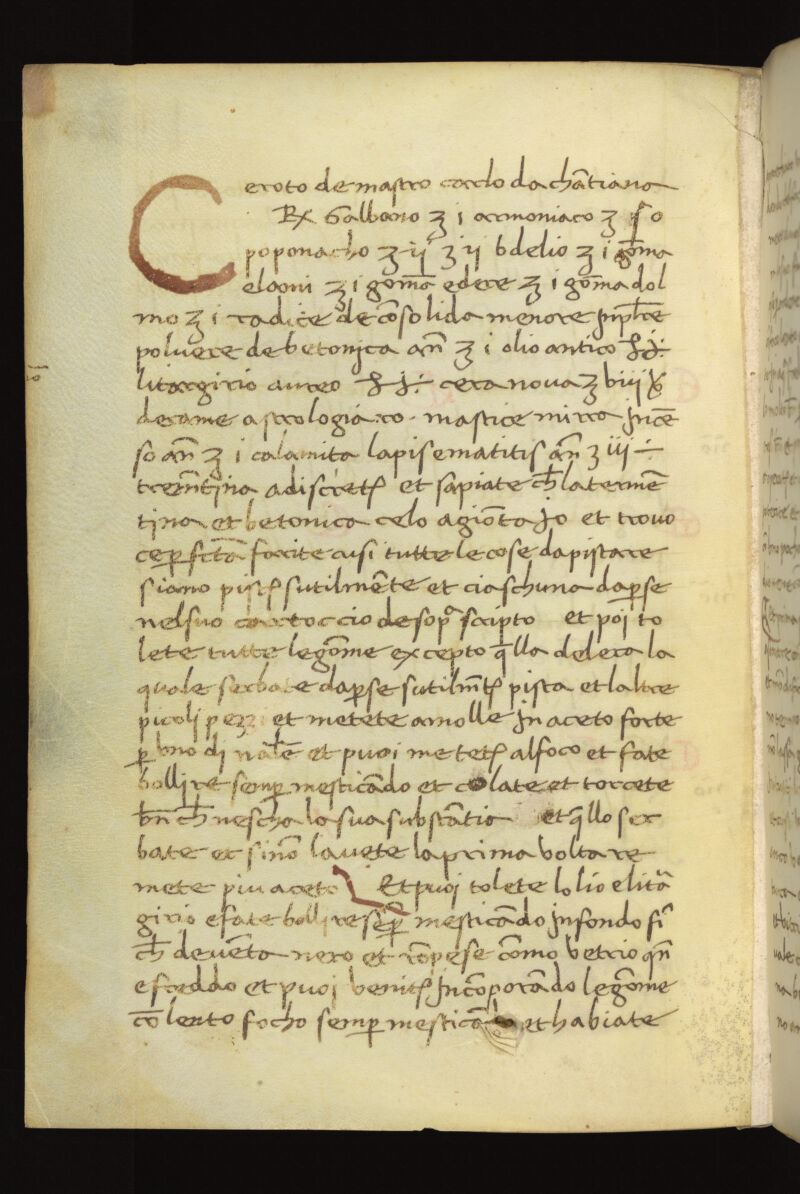 Ceroto de mastro carlo da chãtiano
Rx Galbano ʒ i armoniaco ʒ o
poponacho ʒ ij ʒ ij bdelio ʒ i gõma
elaoni ʒ i gomã edere ʒ i gõma dol
mo ʒ i radice de cõsolida menore
poluere de betonica añ ʒ i olio antico
litargirio aureo cera noua ʒ viiij
derame astrologia ro mastice mirra Incẽ
so añ ʒ i calamita lapis ematitis añ ʒ iij
tremẽtina a discret et sapiate ch̃ la termẽ
tina et betonica celo agiõta Io et trouo
ce perfcta forcite cusi tutte le cose da pistare
siano pist sutilmẽte et ciaschuna daꝑse
nel suo cartoccio de sopᵃ scripto et poi to
lete tutte le gõme excepto q̃lla delera la
quale serbate daꝑse sutilmt pista et laltre
picoli pezi et metete amolle In aceto forte
ꝑ vno di et puoi metet al foco et fate
bollire semꝑ mesticãdo et colate et torcete
bñ ch̃ nescha la sua substãtia et q̃llo ser
bate et sinõ lauete la prima volta re
mete piu aceto Et puoi tolete lolio e litᵃ
girio e fate bollire semꝑ mesticãdo In fondo fi
ch̃ deuẽta nero et rõpese cõmo vetrio qñ
e freddo et puoi venit Incõporãdo le gõme
cõ lento focho semꝑ mesticã et habiate